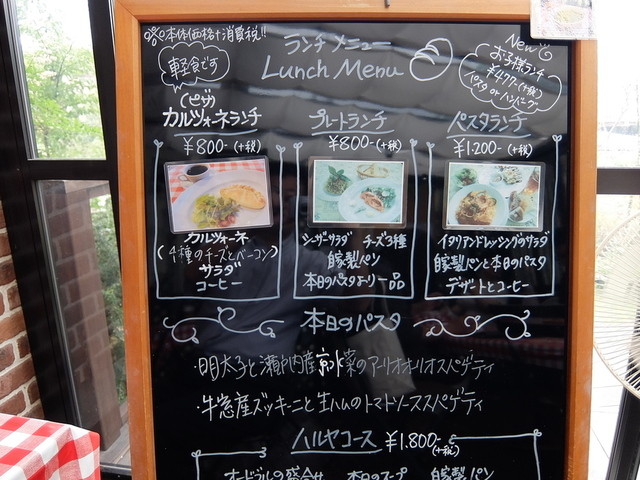 ※本体価格+消費税!!
ランチメニュー
Lunch Menu
軽食です
New
お子様ランチ
¥477-(+税)
パスタ or ハンバーグ
(ピザ)
カルツォーネランチ
¥800-(+税)
カルツォーネ
(4種のチーズとベーコン)
サラダ
コーヒー
プレートランチ
¥800-(+税)
シーザーサラダ チーズ3種
自家製パン
本日のパスタより一品
パスタランチ
¥1.200-(+税)
イタリアンドレッシングのサラダ
自家製パンと本日のパスタ
デザートとコーヒー
本日のパスタ
・明太子と瀬戸内産京水菜のアーリオオーリオスパゲティ
・牛窓産ズッキーニと生ハムのトマトソーススパゲティ
ハルヤコース ¥1.800-(+税)
オードブルの盛合せ 本日のスープ 自家製パン